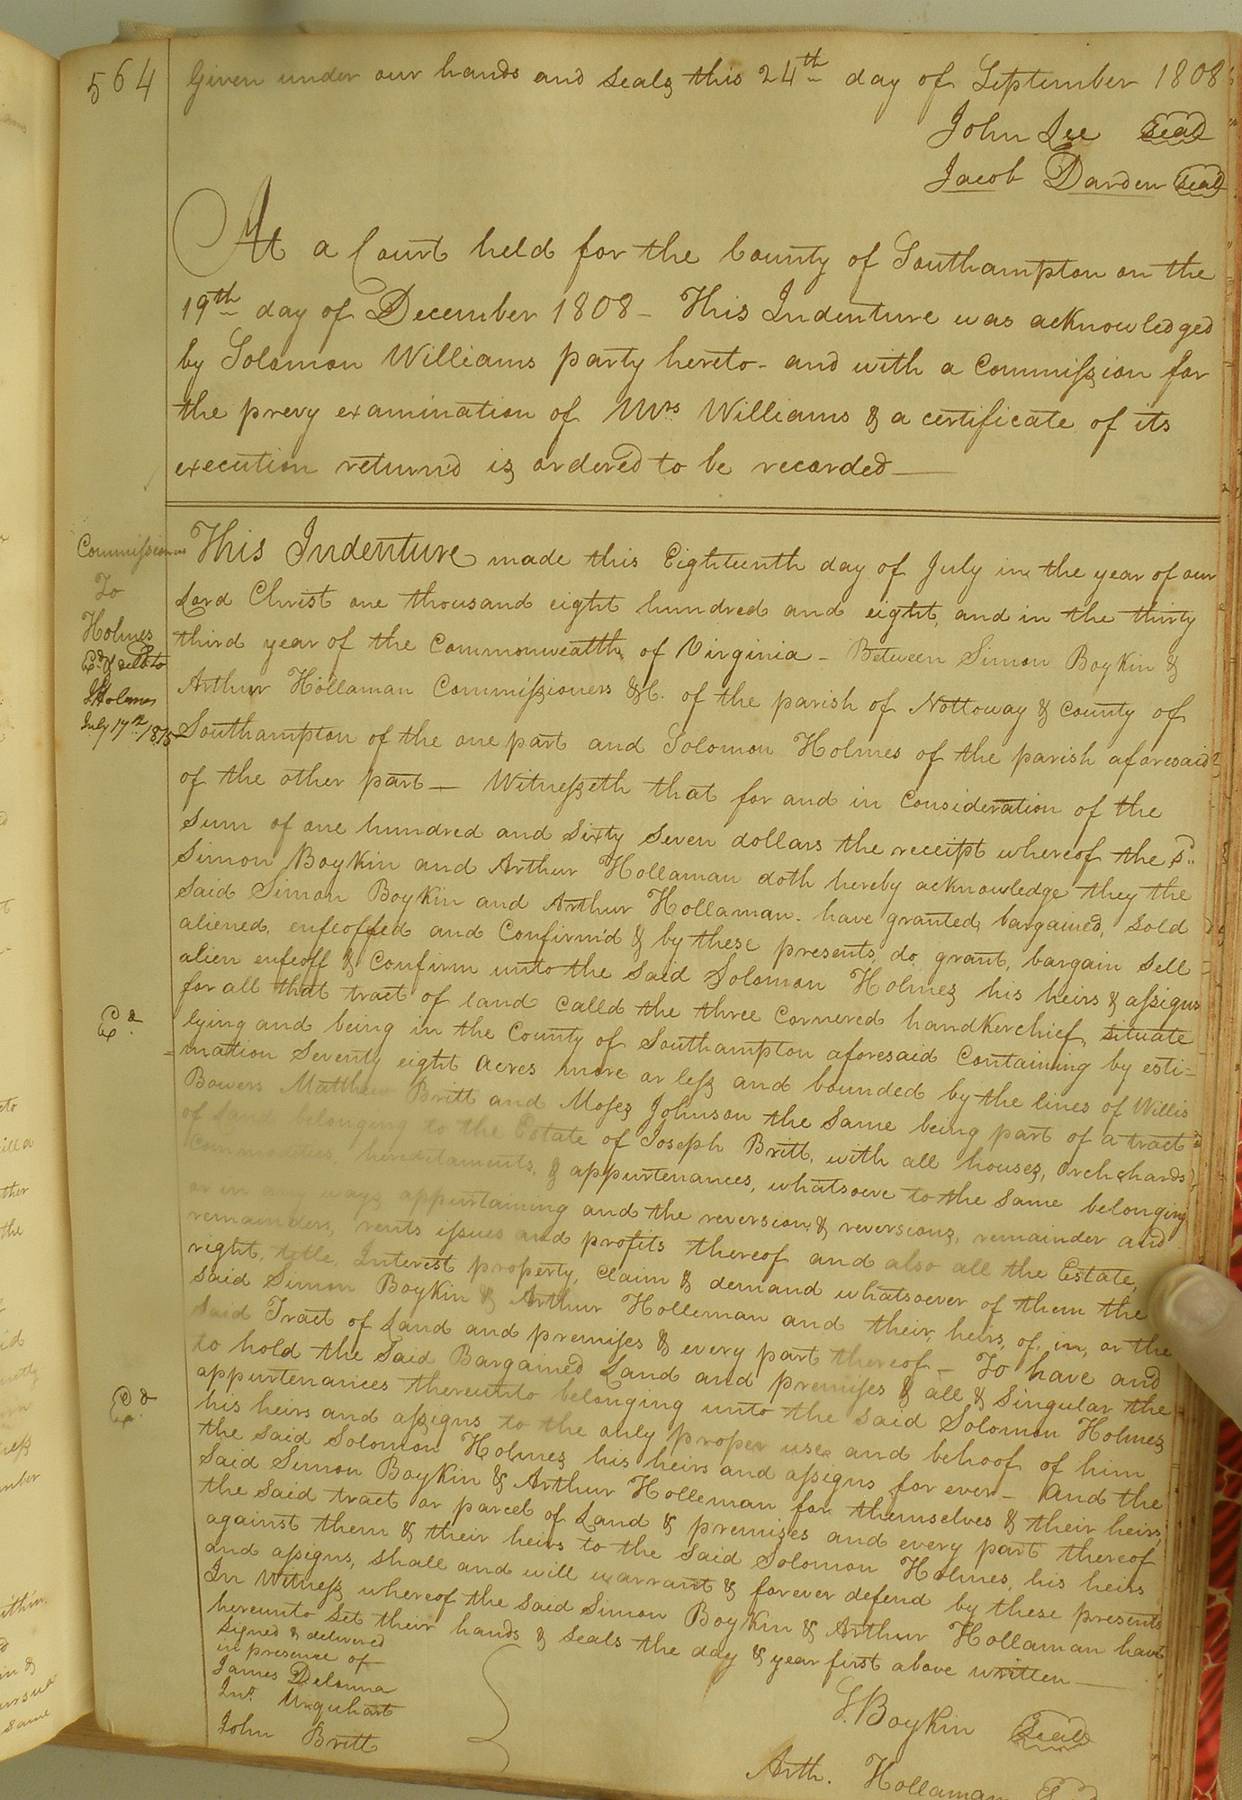 564
Given under our hands and seals this 24th day of September 1808
John Lee Seal
Jacob Darden Seal
At a Court held for the County of Southampton on the
19th day of December 1808 - This Indenture was acknowledged
by Solomon Williams party hereto - and with a Commission for
the prevy examination of Mrs Williams & a certificate of its
execution return'd is ordered to be recorded
Commissioners
To
Holmes
Exd & delld to
July 17th 1815
This Indenture made this Eighteenth day of July in the year of our
Lord Christ one thousand eight hundred and eight, and in the thirty
third year of the Commonwealth of Virginia - Between Simon Boykin &
Arthur Hollaman Commissioners &C. of the parish of Nottoway & County of
Southampton of the one part and Solomon Holmes of the parish aforesaid
of the other part - Witnesseth that for and in Consideration of the
Sum of one hundred and Sixty Seven dollars the receipt whereof the sd
Simon Boykin and Arthur Hollaman doth hereby acknowledge they the
said Simon Boykin and Arthur Hollaman. have granted, bargained, Sold
aliened, enfeoffed and Confirm'd & by these presents, do, grant, bargain Sell
alien enfeoff & Confirm unto the Said Solomon Holmes his heirs & assigns
for all that tract of land calld the three Cornered handkerchief, situate
lying and being in the County of Southampton aforesaid Containing by esti-
mation Seventy eight Acres more or less and bounded by the lines of Willis
Bowers Matthew Britt and Moses Johnson the Same being part of a tract
of Land belonging to the Estate of Joseph Britt, with all houses, Orchchards
hereditaments, & appurtenances, whatsoeve to the Same belonging
or in any ways appurtaining and the reversion & reversions, remainder and
remainders, rents issues and profits thereof and also all the Estate,
right, title, Interest property, Claim & demand whatsoever of them the
said Simon Boykin & Arthur Holleman and their, heirs, of, in, or the
Said Tract of Land and premises & every part thereof - To have and
to hold the Said Bargained Land and premises & all & Singular the
appurtenances thereunto belonging unto the said Solomon Holmes
his heirs and assigns to the only proper use and behoof of him
the Said Solomon Holmes his heirs and assigns for ever - And the
Said Simon Boykin & Arthur Holleman for themselves & their heirs
the Said tract or parcel of Land & premises and every part thereof
against them & their heirs to the Said Solomon Holmes, his heirs
and assigns, shall and will warrant & forever defend by these presents
In Witness whereof the Said Simon Boykin & Arthur Hollaman have
hereunto Set their hands & Seals the day & year first above written
Signed & delivered
in presence of
James Delanna
Jno. Urquhart
John Britt
S. Boykin Seal
Arth. Hollaman